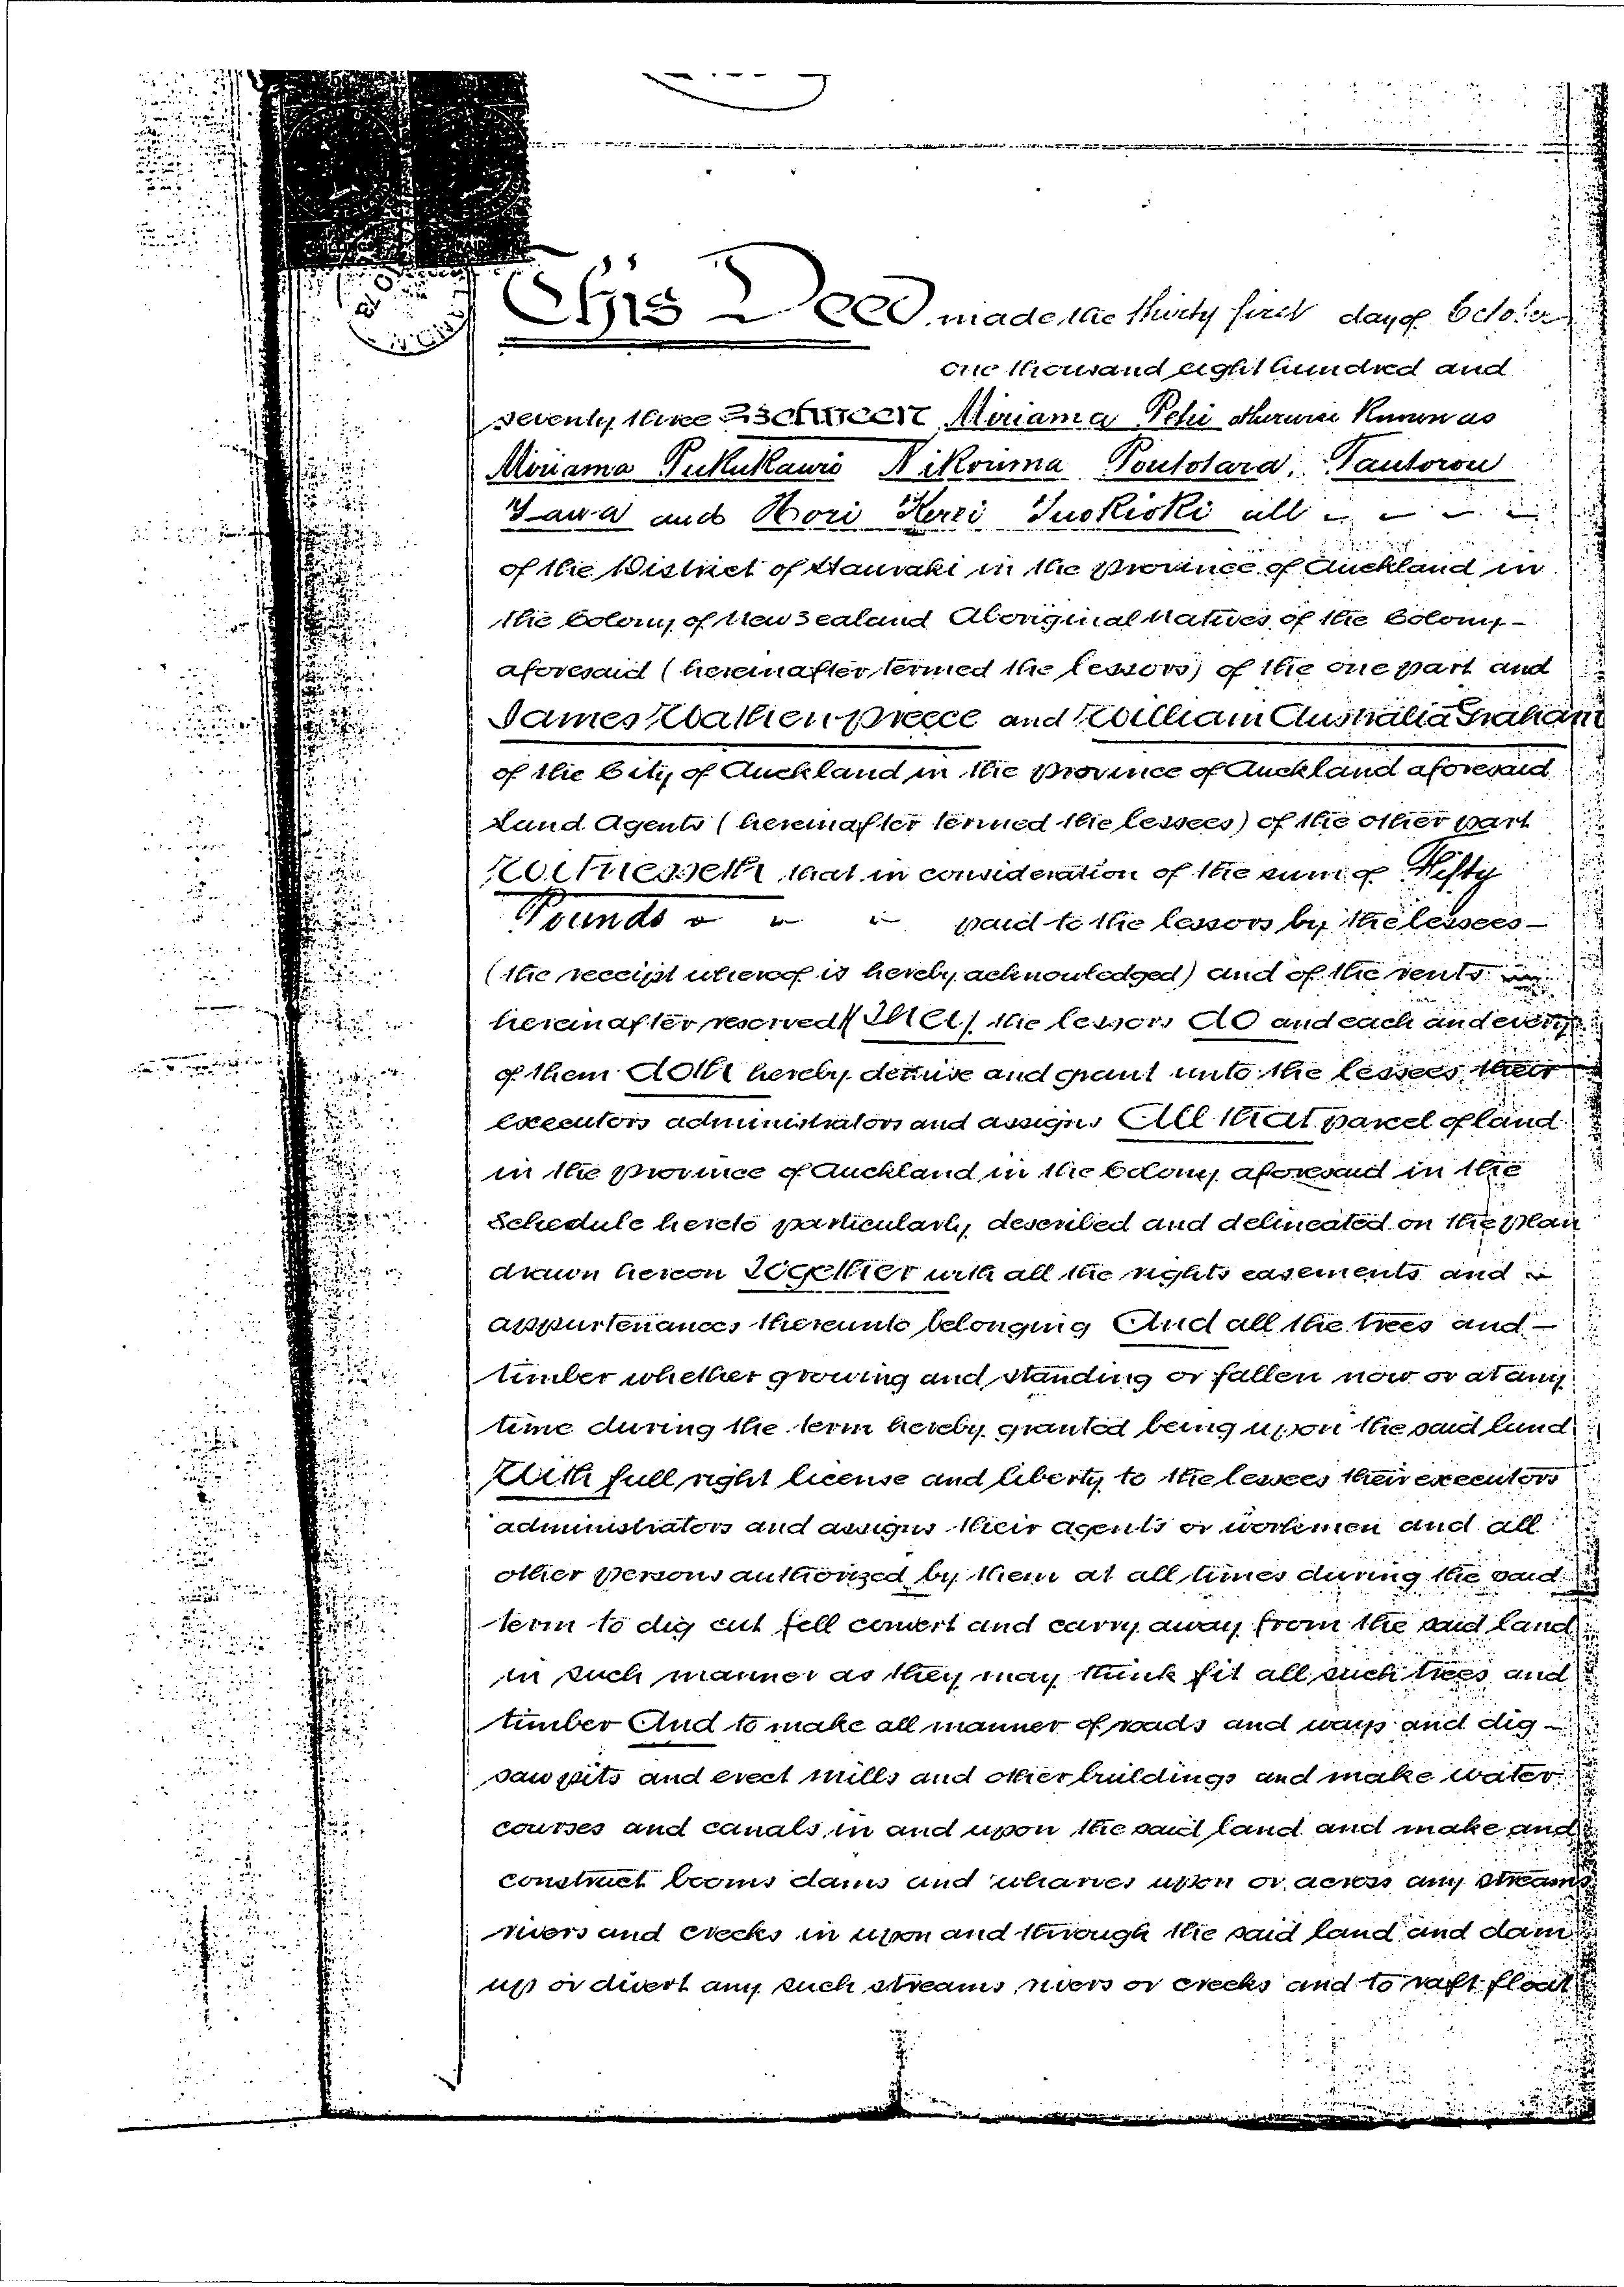 This Deed made the thirty first day of October
one thousand eight hundred and
seventy three Between Miriama Pehi otherwise Known as
Miriama Pukukauri Nikorima Poutotara, Tautoron
Tawa and Hori Kerei Tuokioki all
of the District of Hauraki in the Province of Auckland in
the Colony of New Zealand Aboriginal Natives of the Colony
aforesaid (hereinafter termed the lessors) of the one part and
James Wathen Preece and William Australia Graham
of the City of Auckland in the Province of Auckland aforesaid
Land Agents (hereinafter termed the lessees) of the other part
Witnesseth that in consideration of the sum of Fifty
Pounds paid to the lessors by the lessees
(the receipt whereof is hereby acknowledged) and of the rents
hereinafter reserved They the lessors do and each and every
of them doth hereby demise and grant unto the lessees their
executors administrators and assigns All that parcel of land
in the Province of Auckland in the Colony aforesaid in the
Schedule hereto particularly described and delineated on the plan
drawn hereon Together with all the rights easements and
appurtenances thereunto belonging And all the trees and
timber whether growing and standing or fallen now or at any
time during the term hereby granted being upon the said land
With full right license and liberty to the lessees their executors
administrators and assigns their agents or workmen and all
other persons authorized by them at all times during the said
term to dig cut fell convert and carry away from the said land
in such manner as they may think fit all such trees and
timber And to make all manner of roads and ways and dig
saw pits and erect mills and other buildings and make water
courses and canals in and upon the said land and make and
construct booms dams and wharves upon or across any streams
rivers and creeks in upon and through the said land and dam
up or divert any such streams rivers or creeks and to raft float